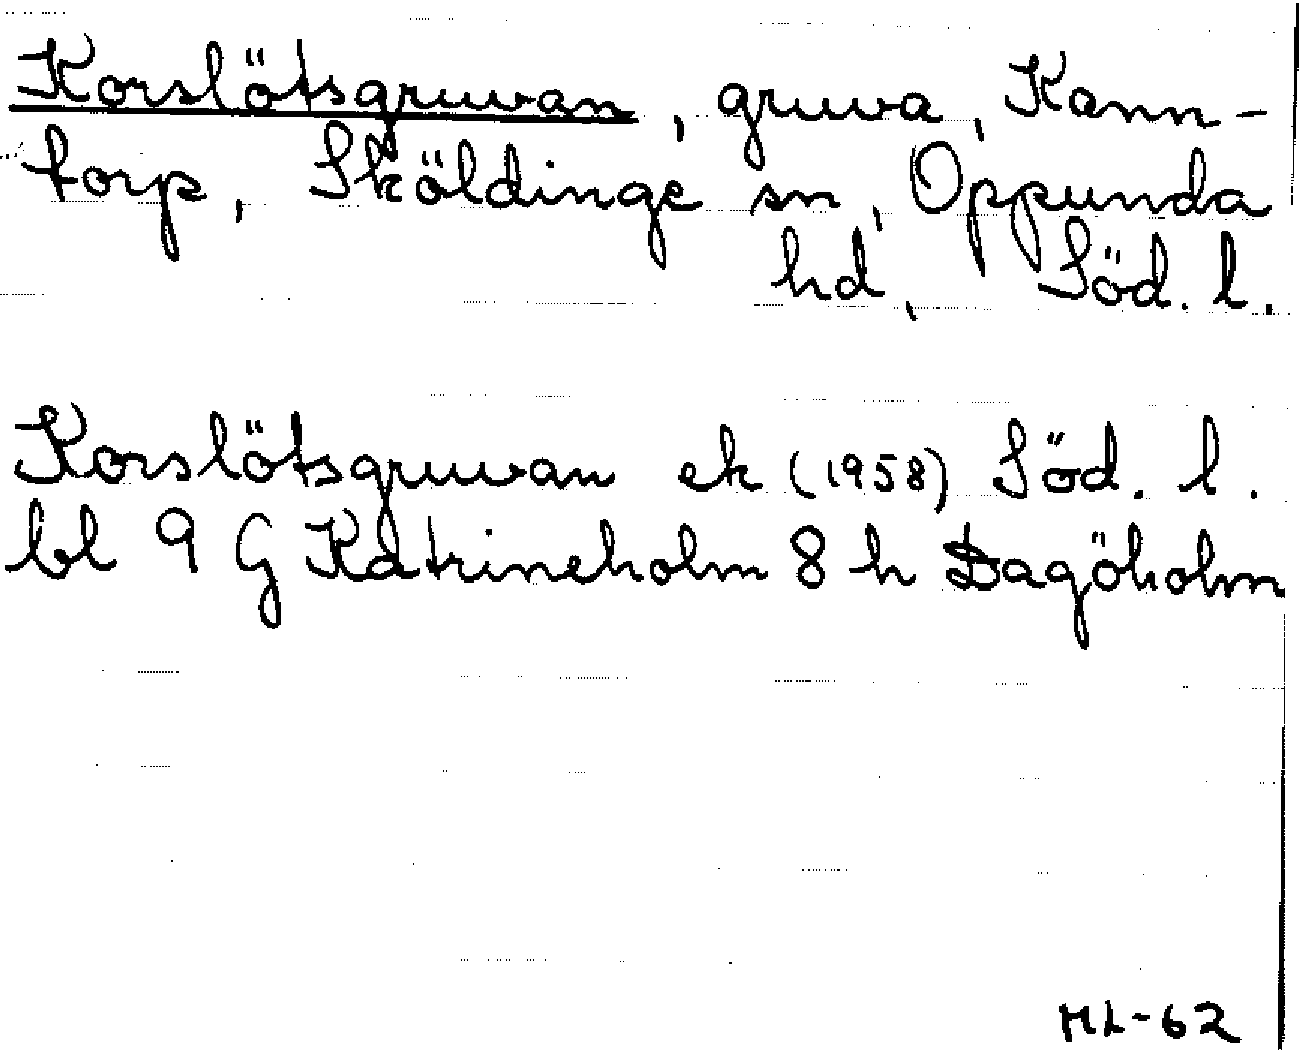 Korslötsgruvan, gruva, Kann-
torp, Sköldinge sn, Oppunda
hd, Söd. l.
Korslötsgruvan ek (1958) Söd. l.
bl 9 G Katrineholm 8 h Dagöholm
ML-62